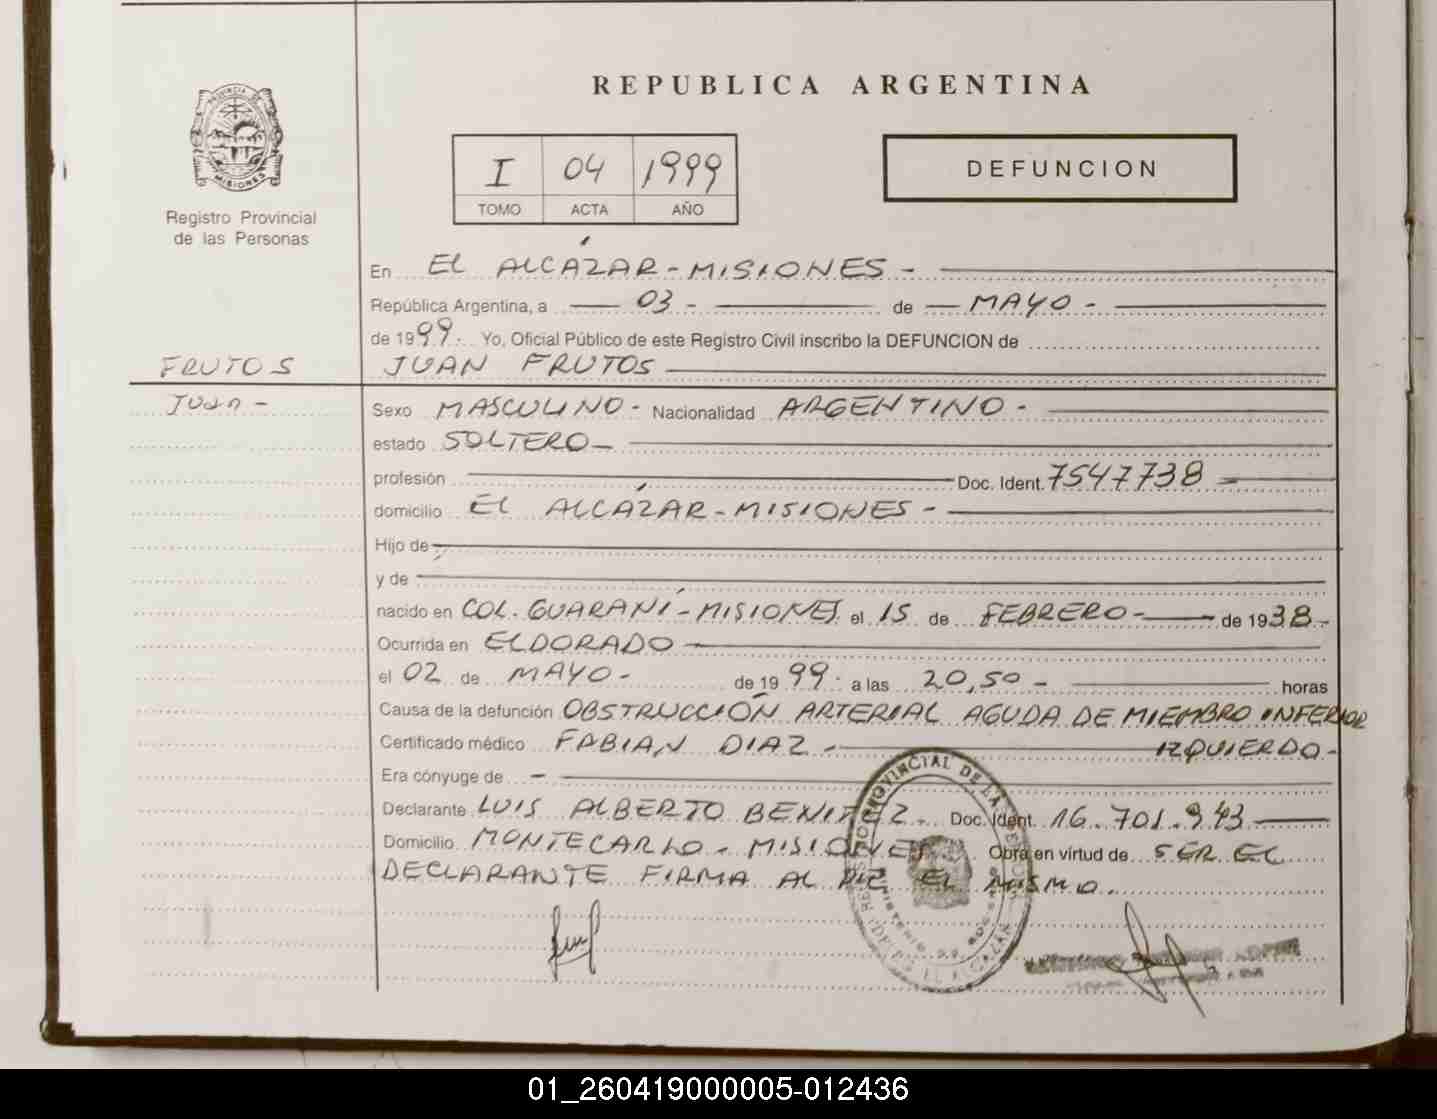 REPUBLICA ARGENTINA
PROVINCIA DE MISIONES
Registro Provincial
de las Personas
I 04 1999
TOMO ACTA AÑO
DEFUNCION
En EL ALCÁZAR - MISIONES -
República Argentina, a 03 - de MAYO -
de 1999. Yo, Oficial Público de este Registro Civil inscribo la DEFUNCION de
FRUTOS JUAN FRUTOS
Juan -
Sexo MASCULINO - Nacionalidad ARGENTINO -
estado SOLTERO -
profesión Doc. Ident. 7547738
domicilio EL ALCÁZAR - MISIONES -
Hijo de
y de
nacido en COL. GUARANÍ - MISIONES el 15 de FEBRERO - de 1938 -
Ocurrida en ELDORADO
el 02 de MAYO - de 1999. a las 20,50 - horas
Causa de la defunción OBSTRUCCIÓN ARTERIAL AGUDA DE MIEMBRO INFERIOR
Certificado médico FABIAN DIAZ - IZQUIERDO -
Era cónyuge de -
Declarante LUIS ALBERTO BENITEZ - Doc. Ident. 16.701.943
Domicilio MONTECARLO - MISIONES Obra en virtud de SER EL
DECLARANTE FIRMA AL PIE EL MISMO.
01_260419000005-012436